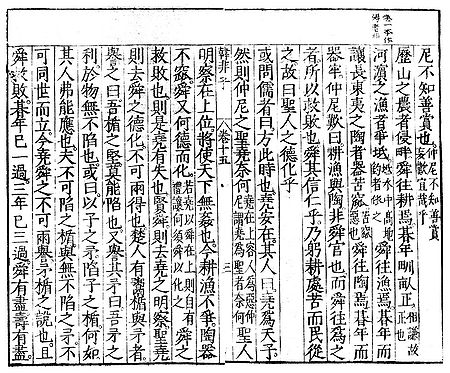 尼不知善賞也仲尼不知善賞
歷山之農者侵畔舜往耕焉朞年甽畝正相謙故正也
河濱之漁者爭坻坻水中高地釣者依之舜往漁焉朞年而
讓長東夷之陶者器苦窳窳惡也舜往陶焉朞年而
器牢仲尼歎曰耕漁與陶非舜官也而舜往為之
者所以救敗也舜其信仁乎乃躬耕處苦而民從
之故曰聖人之德化乎
或問儒者曰方此時也堯安在其人曰堯為天子
然則仲尼之聖堯奈何堯在上容人為惡仲尼謂堯為聖者奈何聖人
韓非子 卷十五
明察在上位將使天下無姦也今耕漁不爭陶器
不窳舜又何德而化若堯以舜在上則自有禮讓何須舜以化之舜之
救敗也則是堯有失也賢舜則去堯之明察聖堯
則去舜之德化不可兩得也楚人有鬻楯與矛者
譽之曰吾楯之堅莫能陷也又譽其矛曰吾矛之
利於物無不陷也或曰以子之矛陷子之楯何如
其人弗能應也夫不可陷之楯與無不陷之矛不
可同世而立今堯舜之不可兩譽矛楯之說也且
舜救敗朞年已一過三年已三過舜有盡壽有盡